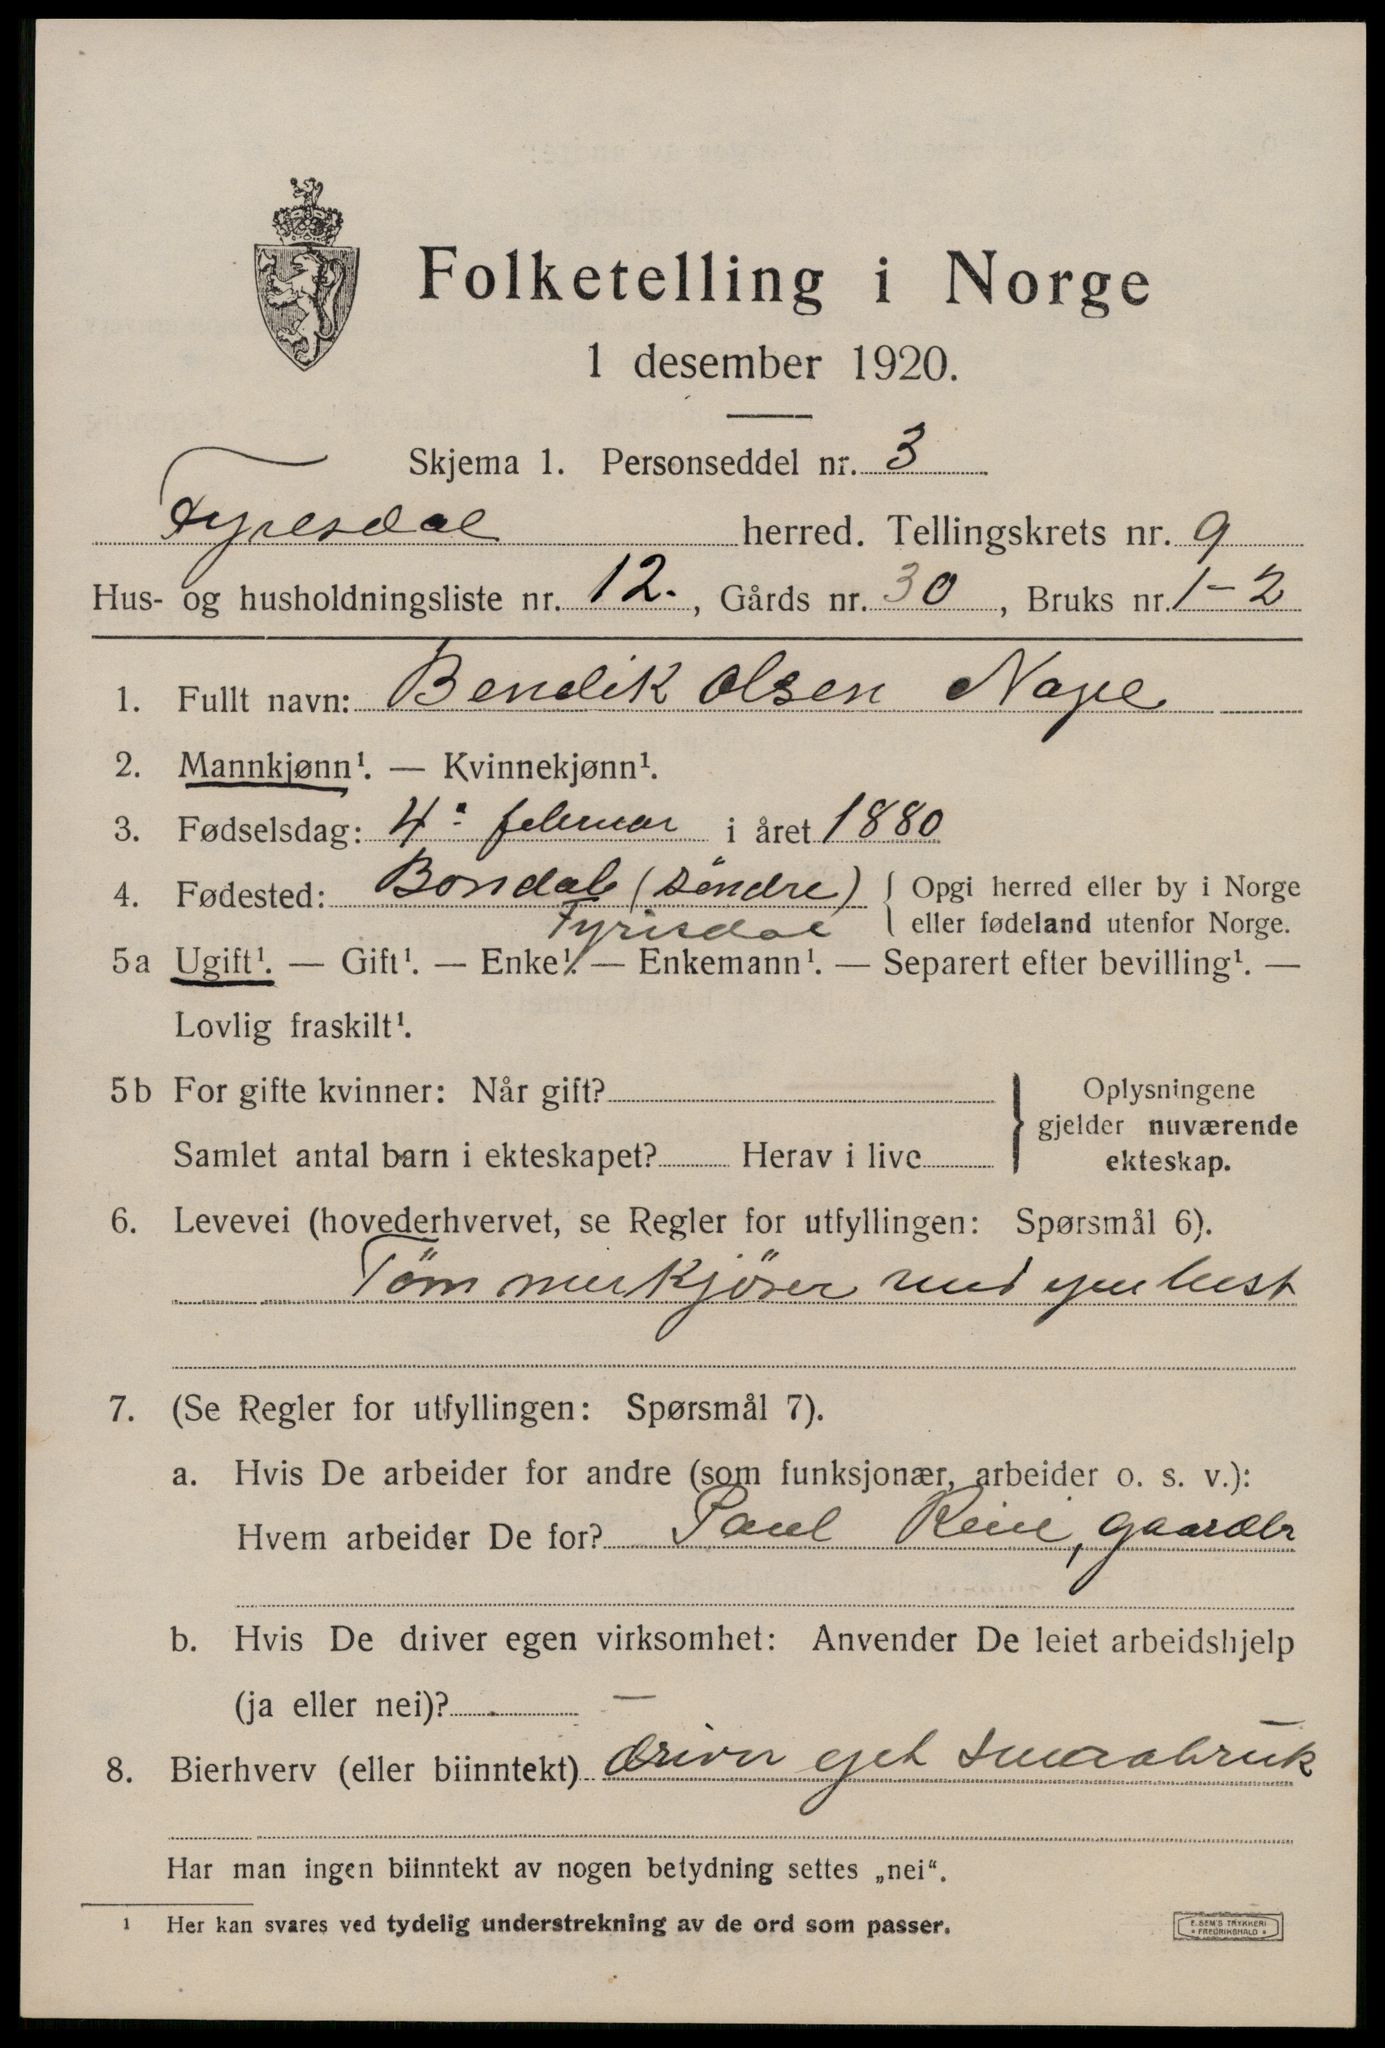 Folketelling i Norge
1 desember 1920.
Skjema 1. Personseddel nr. 3
Fyresdal herred. Tellingskrets nr. 9
Hus- og husholdningsliste nr. 12., Gårds nr. 30, Bruks nr. 1-2
1. Fullt navn: Bendik Olsen Nape
2. Mannkjønn¹. — Kvinnekjønn¹.
3. Fødselsdag: 4 februar i året 1880
4. Fødested: Bondal (söndre) { Opgi herred eller by i Norge
Fyrisdal eller fødeland utenfor Norge.
5a Ugift¹. — Gift¹. — Enke¹. — Enkemann¹. — Separert efter bevilling¹. —
Lovlig fraskilt¹.
5b For gifte kvinner: Når gift? } Oplysningene
gjelder nuværende
Samlet antal barn i ekteskapet? Herav i live
ekteskap.
6. Levevei (hovederhvervet, se Regler for utfyllingen: Spørsmål 6).
Tömmerkjörer med egen hest
7. (Se Regler for utfyllingen: Spørsmål 7).
a. Hvis De arbeider for andre (som funksjonær, arbeider o. s. v.):
Hvem arbeider De for? Paul , gaardbr
b. Hvis De driver egen virksomhet: Anvender De leiet arbeidshjelp
(ja eller nei)? —
8. Bierhverv (eller biinntekt) driver eget smaabruk
Har man ingen biinntekt av nogen betydning settes „nei“.
1 Her kan svares ved tydelig understrekning av de ord som passer.
E. SEM'S TRYKKERI
* FREDRIKSHALD *